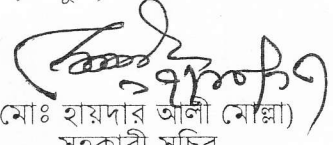 মোঃ হায়দার আলী মোল্লা)
সহকারী সচিব